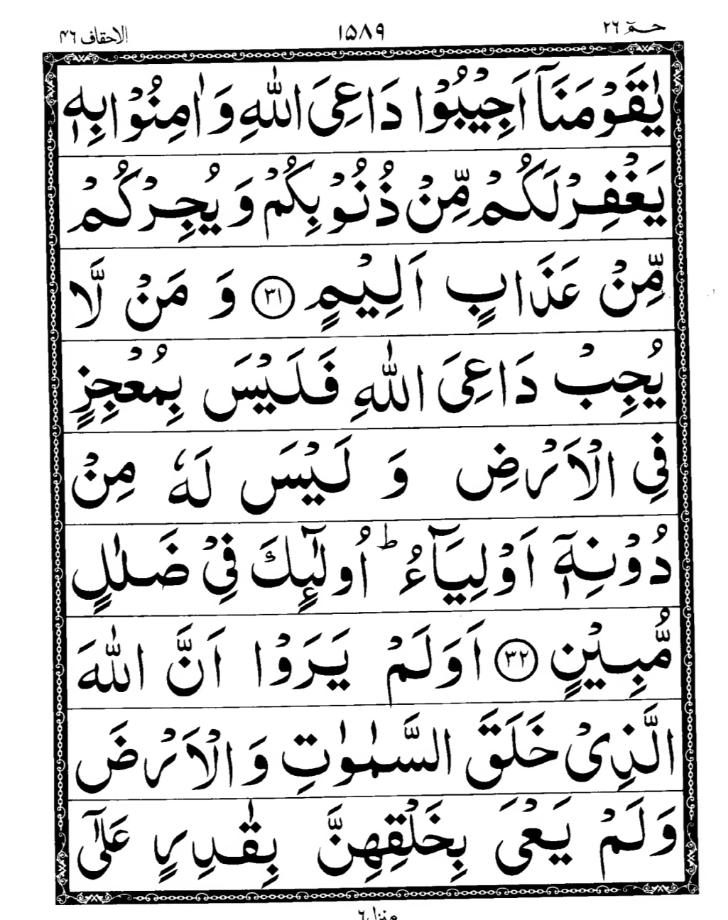 حٰمٓ ٢٦ ١٥٨٩ الاحقاف ٤٦
يٰقَوْمَنَاۤ اَجِيْبُوْا دَاعِىَ اللّٰهِ وَاٰمِنُوْا بِهٖ
يَغْفِرْ لَكُمْ مِّنْ ذُنُوْبِكُمْ وَ يُجِرْكُمْ
مِّنْ عَذَابٍ اَلِيْمٍ ﴿٣١﴾ وَ مَنْ لَّا
يُجِبْ دَاعِىَ اللّٰهِ فَلَيْسَ بِمُعْجِزٍ
فِى الْاَرْضِ وَ لَيْسَ لَهٗ مِنْ
دُوْنِهٖۤ اَوْلِيَآءُ ؕ اُولٰٓئِكَ فِىْ ضَلٰلٍ
مُّبِيْنٍ ﴿٣٢﴾ اَوَلَمْ يَرَوْا اَنَّ اللّٰهَ
الَّذِىْ خَلَقَ السَّمٰوٰتِ وَ الْاَرْضَ
وَلَمْ يَعْىَ بِخَلْقِهِنَّ بِقٰدِرٍ عَلٰٓى
منزل ٦